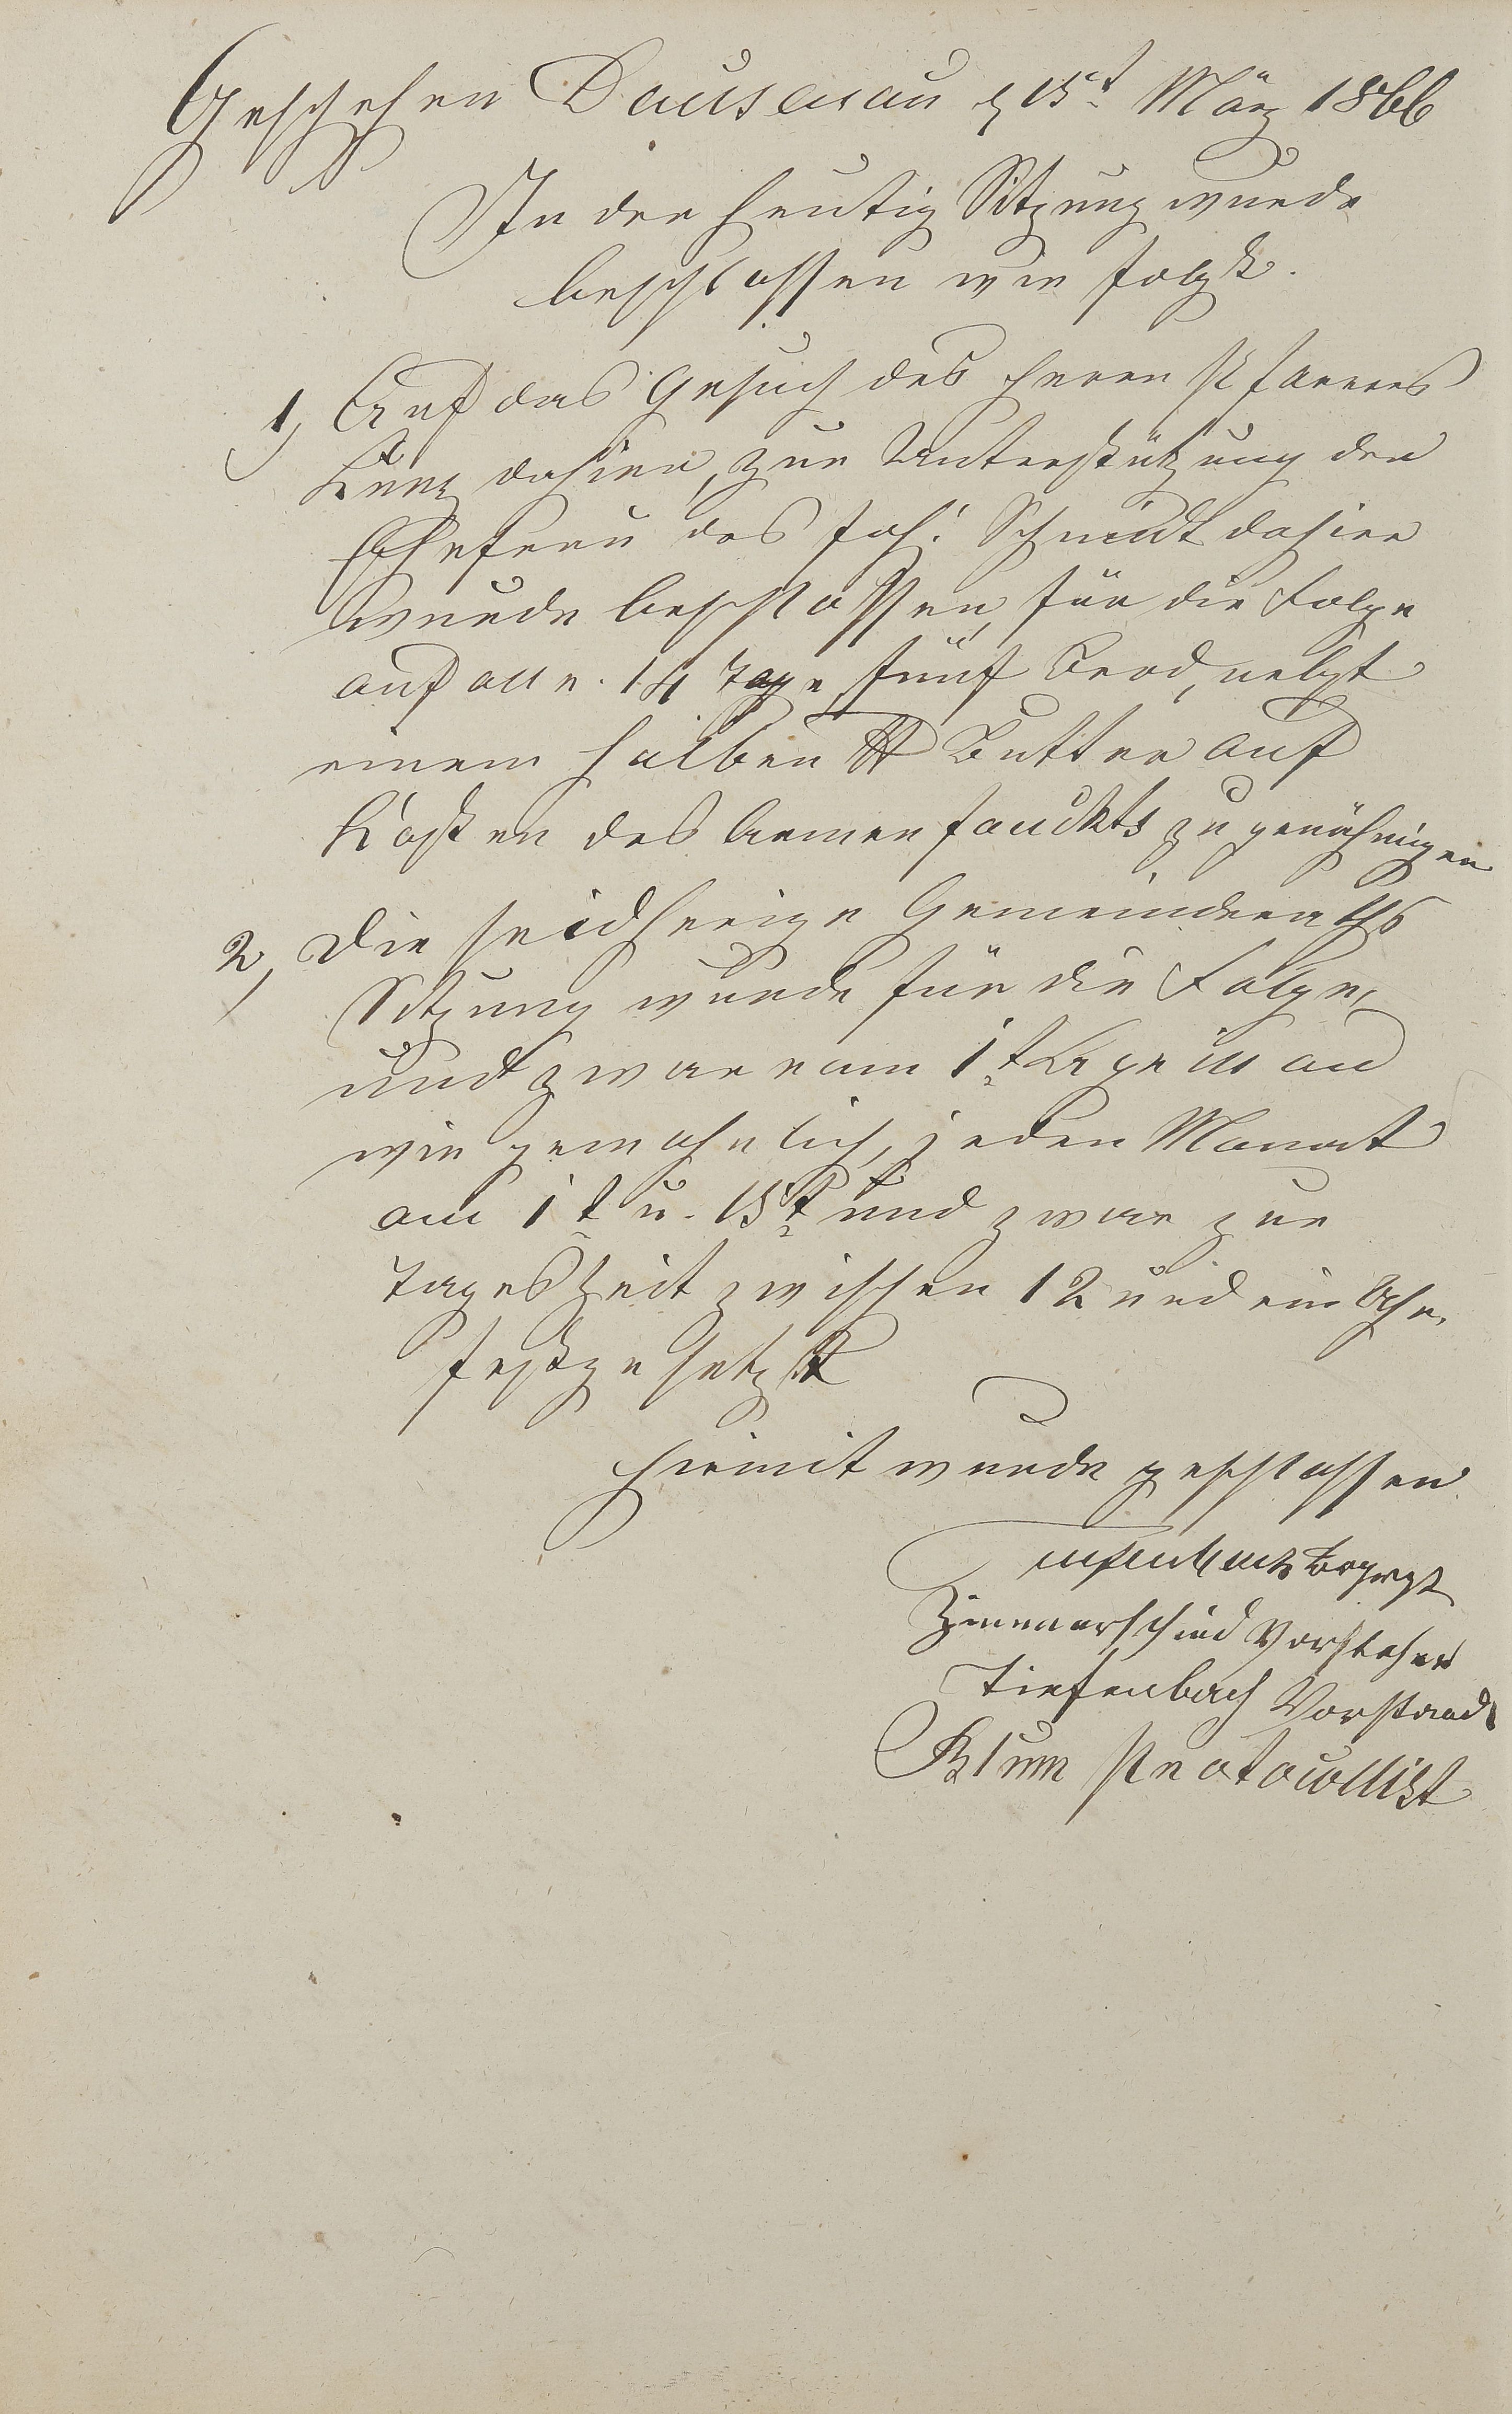 Geschehen Dausenau d 15t März 1866
In der heutig Sitzung wurde
beschlossen wie folgt.
1, Auf das Gesuch des Herrn Pfarrers
dahier, zur Unterstützung der
Ehefrau des Joh: Schmidt dahier
wurde beschlossen, für die Folge
auf alle 14 Tage fünf Brod, nebst
einem halben ℔ Butter auf
Kosten des Armenfondts zu genähmigen
2, Die seidherige Gemeinderaths
Sitzung wurde für die Folge,
und zwar vom 1t April an
wie gewöhnlich, jeden Monat
am 1t u. 15t und zwar zur
Tageszeit zwischen 12 und ein Uhr,
festgesetzt
Hiemit wurde geschlossen
Zimmerschied Vorsteher
Tiefenbach Vorstand
Blum Protocollist